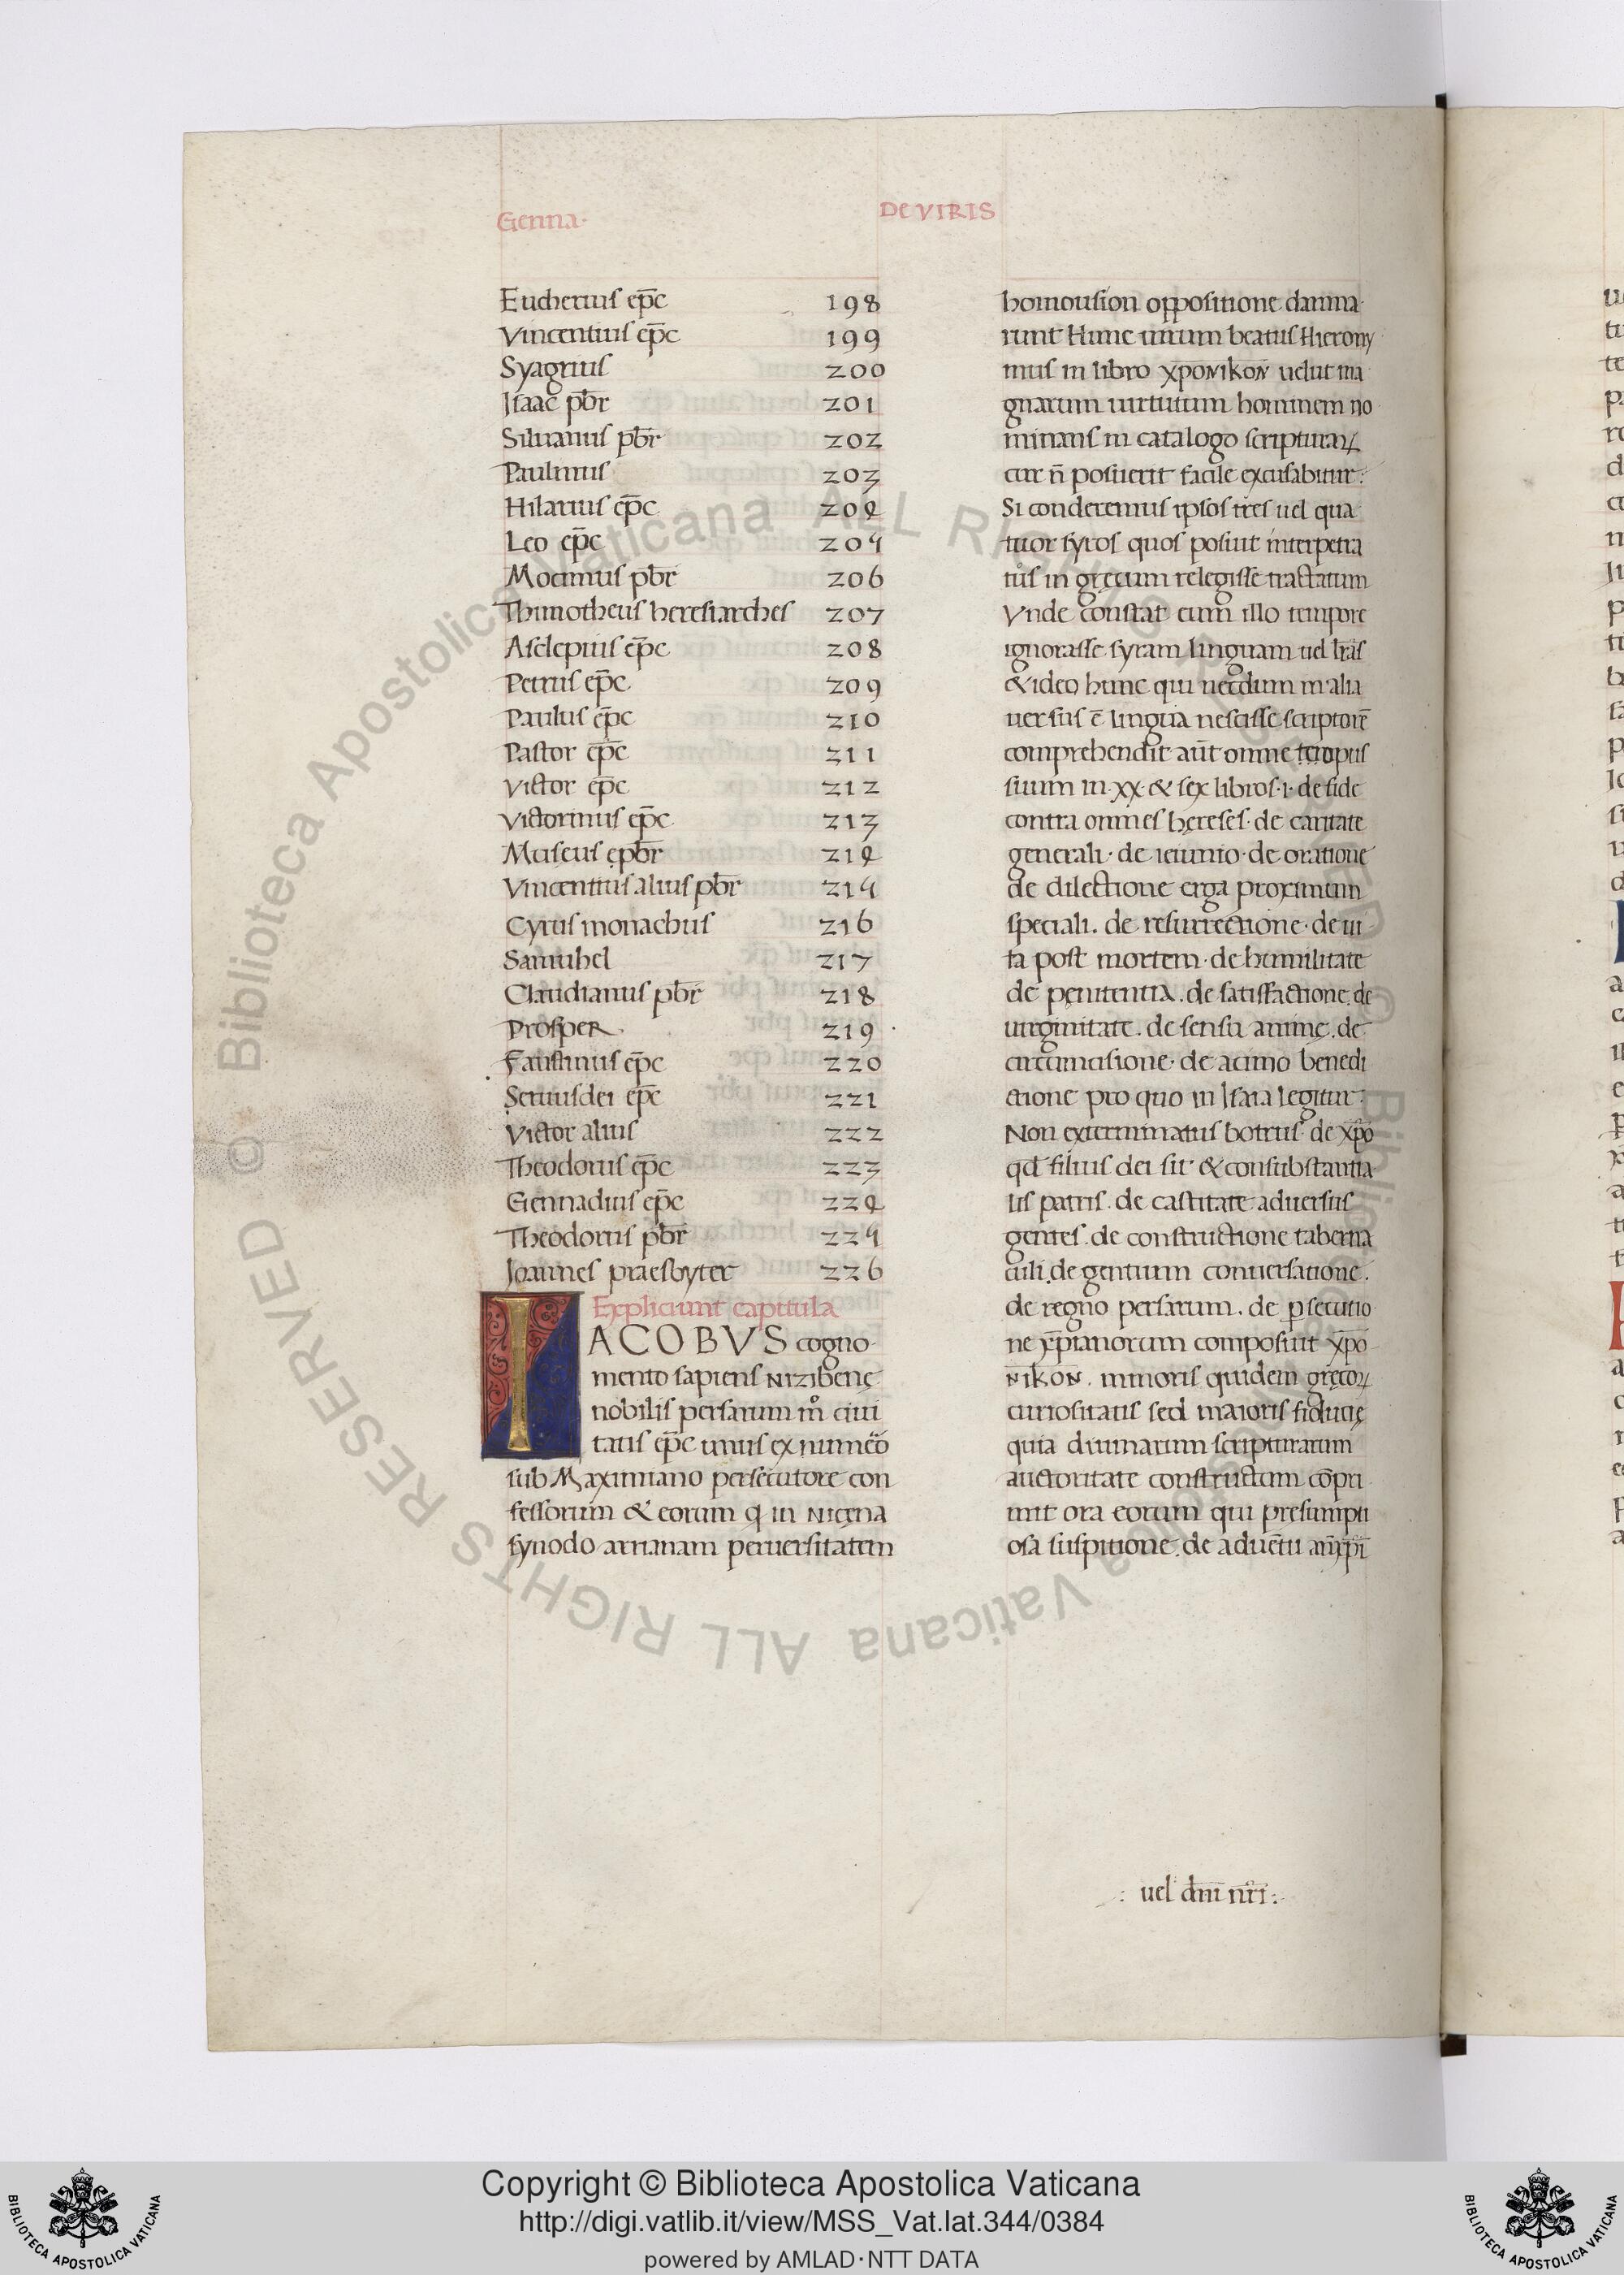 Genna·
DE VIRIS
Eucherius ep̄c 198
Vincentius ep̄c 199
Syagrius 200
Isaac pb̄r 201
Siluanus pb̄r 202
Paulinus 203
Hilarius ep̄c 204
Leo ep̄c 205
Mocimus pb̄r 206
Thimotheus heresiarches 207
Asclepius ep̄c 208
Petrus ep̄c 209
Paulus ep̄c 210
Pastor ep̄c 211
Victor ep̄c 212
Victorinus ep̄c 213
Museus epb̄r 214
Vincentius alius pb̄r 215
Cyrus monachus 216
Samuhel 217
Claudianus pb̄r 218
Prosper 219
Faustinus ep̄c 220
Seruusdei ep̄c 221
Victor alius 222
Theodorus ep̄c 223
Gennadius ep̄c 224
Theodorus pb̄r 225
Joannes praesbyter 226
Expliciunt capitula
IACOBVS cogno-
mento sapiens NIZIbenę
nobilis persarum m̊ ciui
tatis ep̄c unus ex numeō
sub Maximiano persecutore con
fessorum & eorum q̄ in NIcęna
synodo arrianam peruersitatem
homousion oppositione damna-
runt Hunc uirum beatus Hierony
mus in libro χρονικον uelut ma
gnarum uirtutum hominem no
minans in catalogo scripturaꝝ
cur n̄ posuerit facile excusabitur:
Si conderemus ipsos tres uel qua
tuor syros quos posuit interpetra
tůs in gręcum relegisse tractatum
Vnde constat eum illo tempore
ignorasse syram linguam uel l̄ras
& ideo hunc qui necdum in alia
uersus ē lingua nescisse scriptorē
comprehendit aūt omne tempus
suum in·xx·& sex libros·i·de fide
contra omnes hęreses·de caritate
generali·de ieiunio·de oratione
de dilectione erga proximum
speciali. de resurrectione·de ui
ta post mortem·de humilitate
de pęnitentia.de satisfactione.de
uirginitate.de sensu animę.de
circumcisione·de acimo benedi
ctione pro quo in Isaia legitur:
Non exterminatus botrus de xp̄o
qd̄ filius dei sit & consubstantia
lis patris.de castitate aduersus
gentes.de constructione taberna
culi.de gentium conuersatione.
de regno persarum.de ꝑsecutio
ne xp̄ianorum composuit χρο
νικον. minoris quidem gręcoꝝ
curiositatis sed maioris fiducię
quia diuinarum scripturarum
auctoritate constructum cōpri
mit ora eorum qui presumpti
osa suspitione.de aduētu
: uel dn̄i nr̄i :
Copyright © Biblioteca Apostolica Vaticana
http://digi.vatlib.it/view/MSS_Vat.lat.344/0384
powered by AMLAD·NTT DATA
BIBLIOTECA APOSTOLICA VATICANA
BIBLIOTECA APOSTOLICA VATICANA
© Biblioteca Apostolica Vaticana ALL RIGHTS RESERVED © Biblioteca Apostolica Vaticana ALL RIGHTS RESERVED